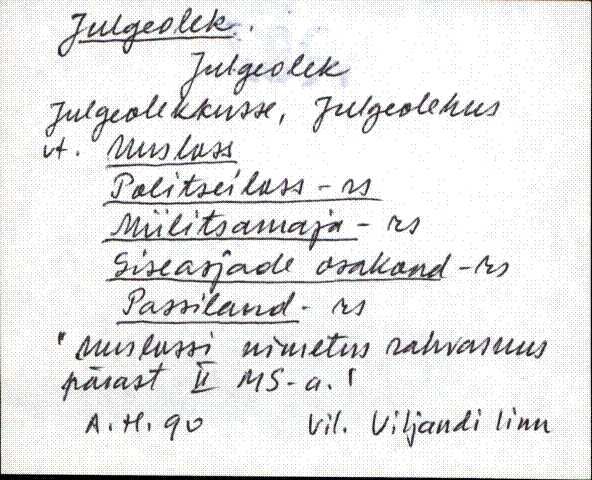 Julgeolek.
Julgeolek
Julgeolekkusse, Julgeolekus
vt. Uusloss
Politseiloss - rs
Miilitsamaja - rs
Siseasjade osakond - rs
Passiland - rs
"Uuslossi nimetus rahvasuus
pärast II MS-a."
A.H. 90 Vil. Viljandi linn